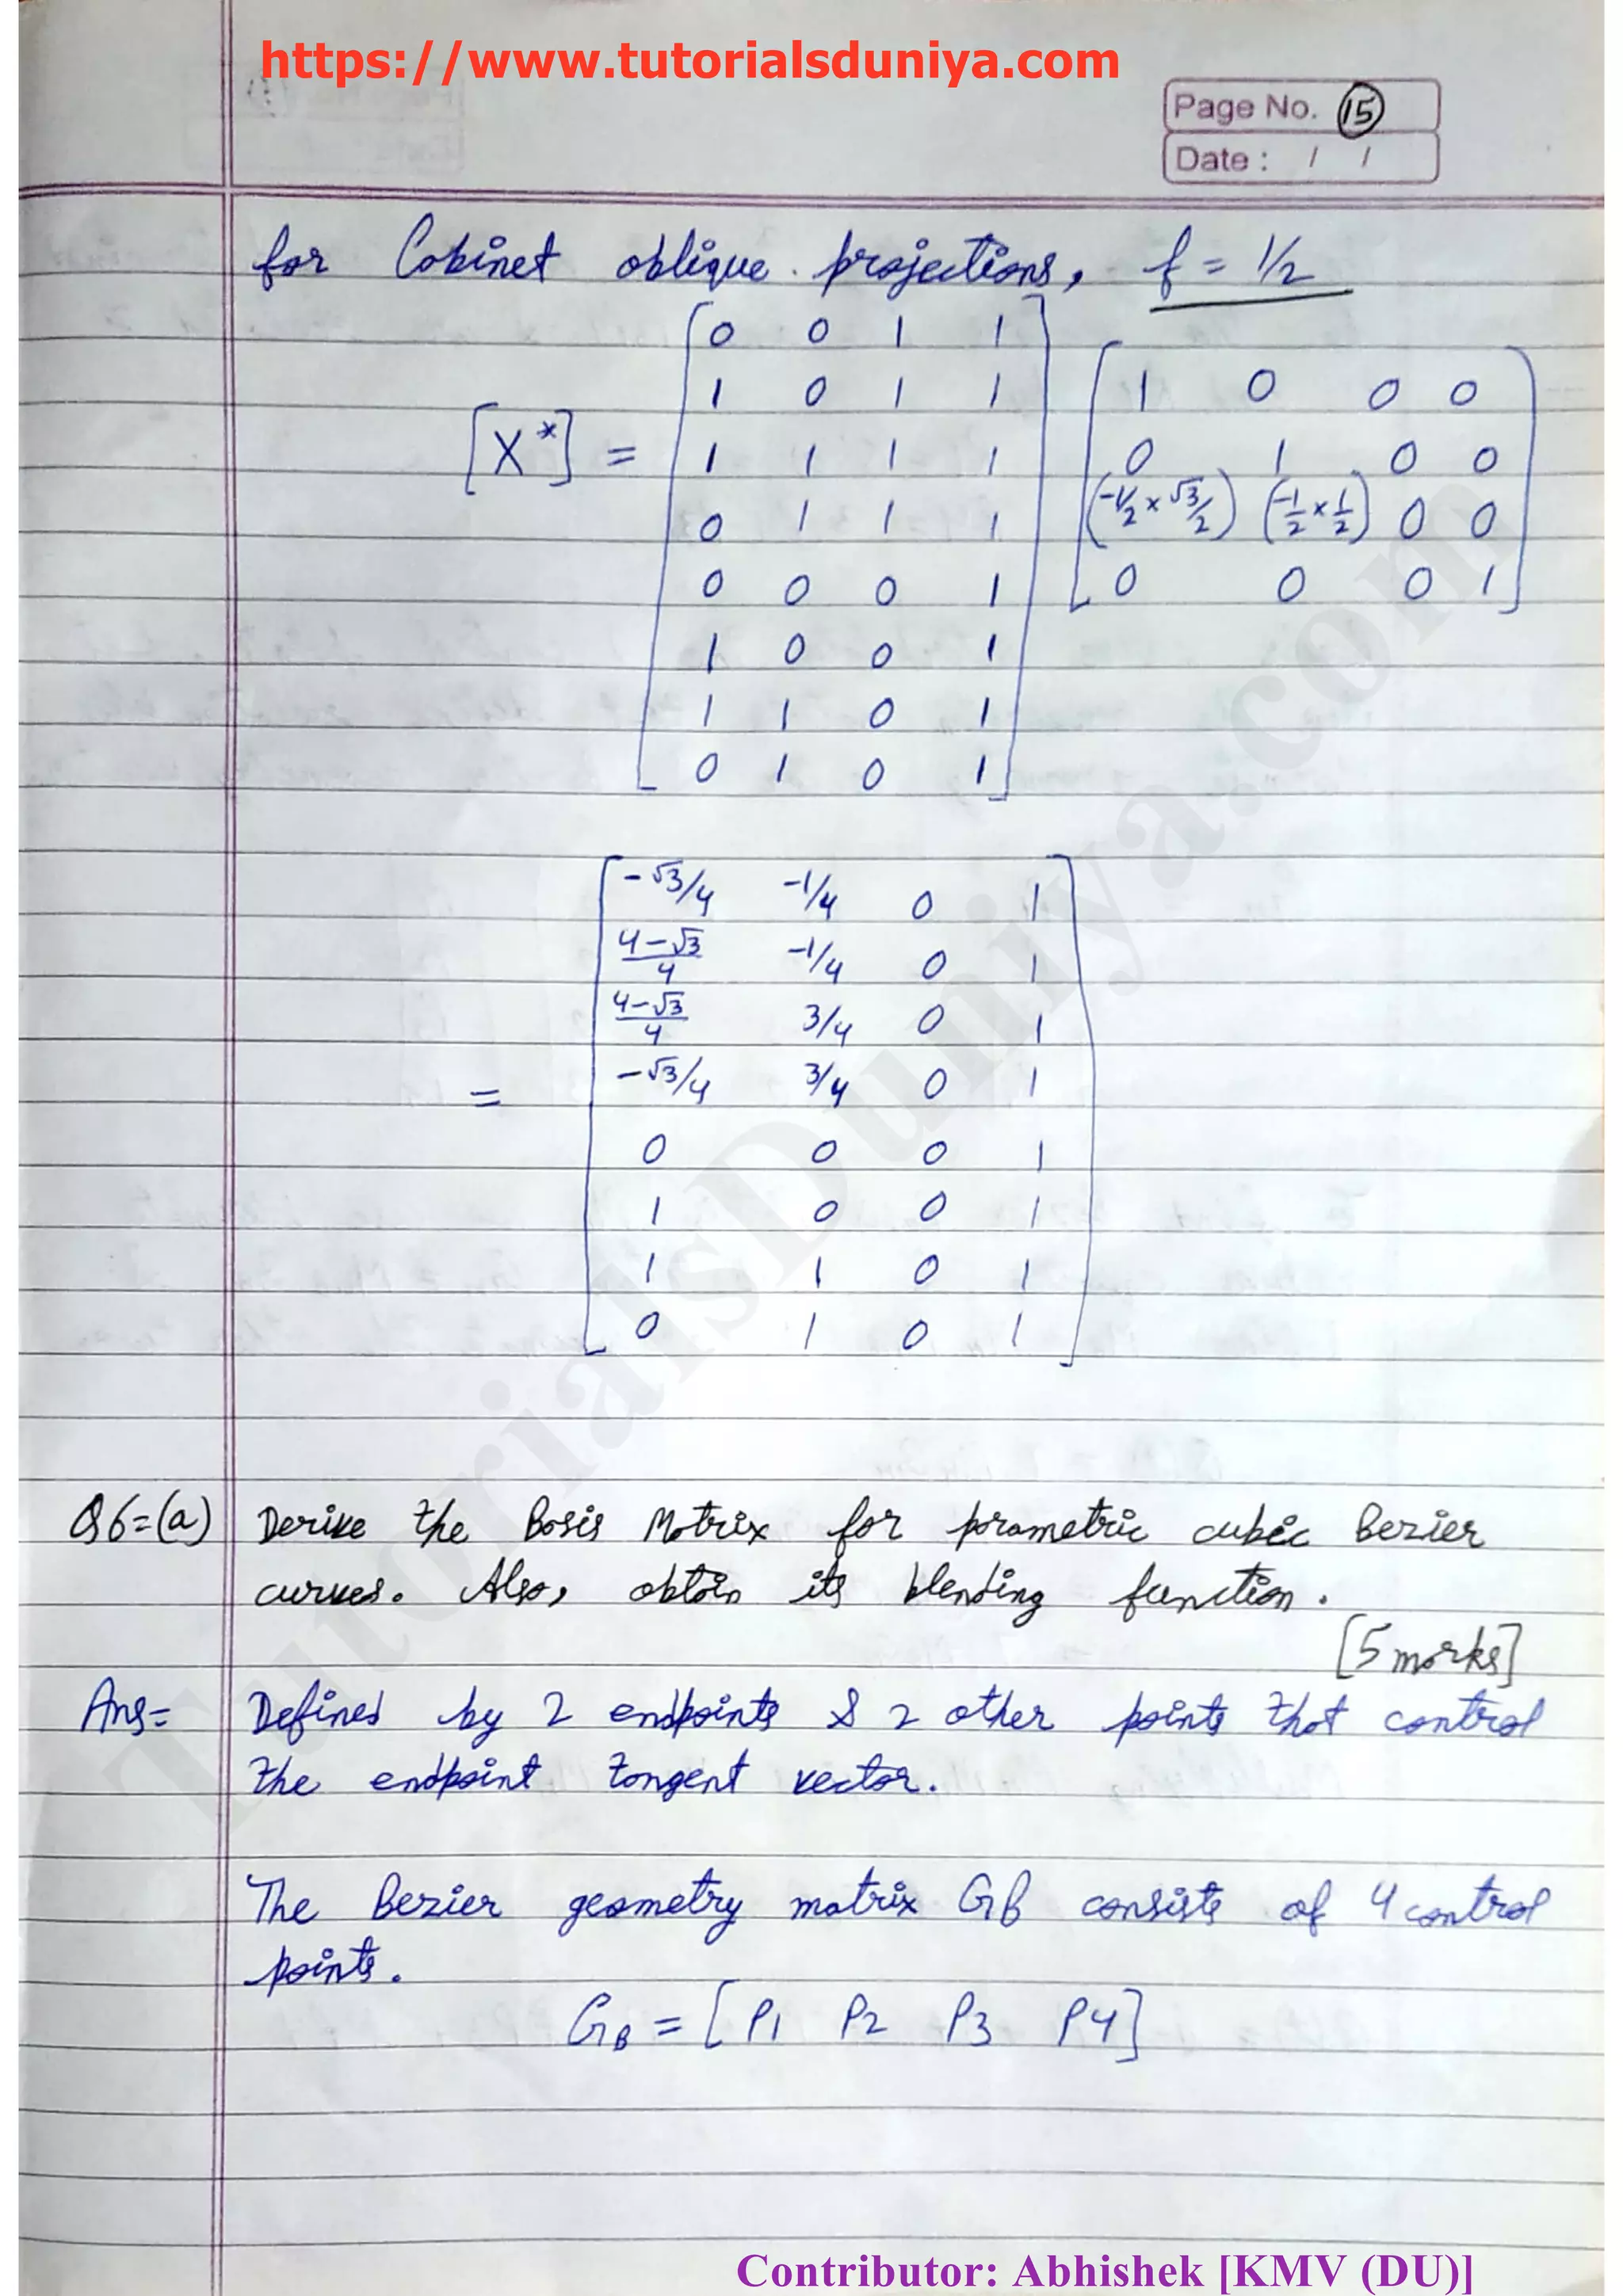 https://www.tutorialsduniya.com
Page No. 15
Date : / /
for Cabinet oblique projections, f = 1/2
[X*] = [0 0 1 1] [1 0 0 0]
1 0 1 1 0 1 0 0
1 1 1 1 (-1/2 × √3/2) (-1/2 × 1/2) 0 0
0 1 1 1 0 0 0 1
0 0 0 1
1 0 0 1
1 1 0 1
0 1 0 1
= [-√3/4 -1/4 0 1
4-√3/4 -1/4 0 1
4-√3/4 3/4 0 1
-√3/4 3/4 0 1
0 0 0 1
1 0 0 1
1 1 0 1
0 1 0 1]
Q6=(a) Derive the Basis Matrix for parametric cubic Bezier
curves. Also, obtain its blending function.
[5 marks]
Ans= Defined by 2 endpoints & 2 other points that control
the endpoint tangent vector.
The Bezier geometry matrix GB consists of 4 control
points.
GB = [P1 P2 P3 P4]
TutorialsDuniya.com
Contributor: Abhishek [KMV (DU)]